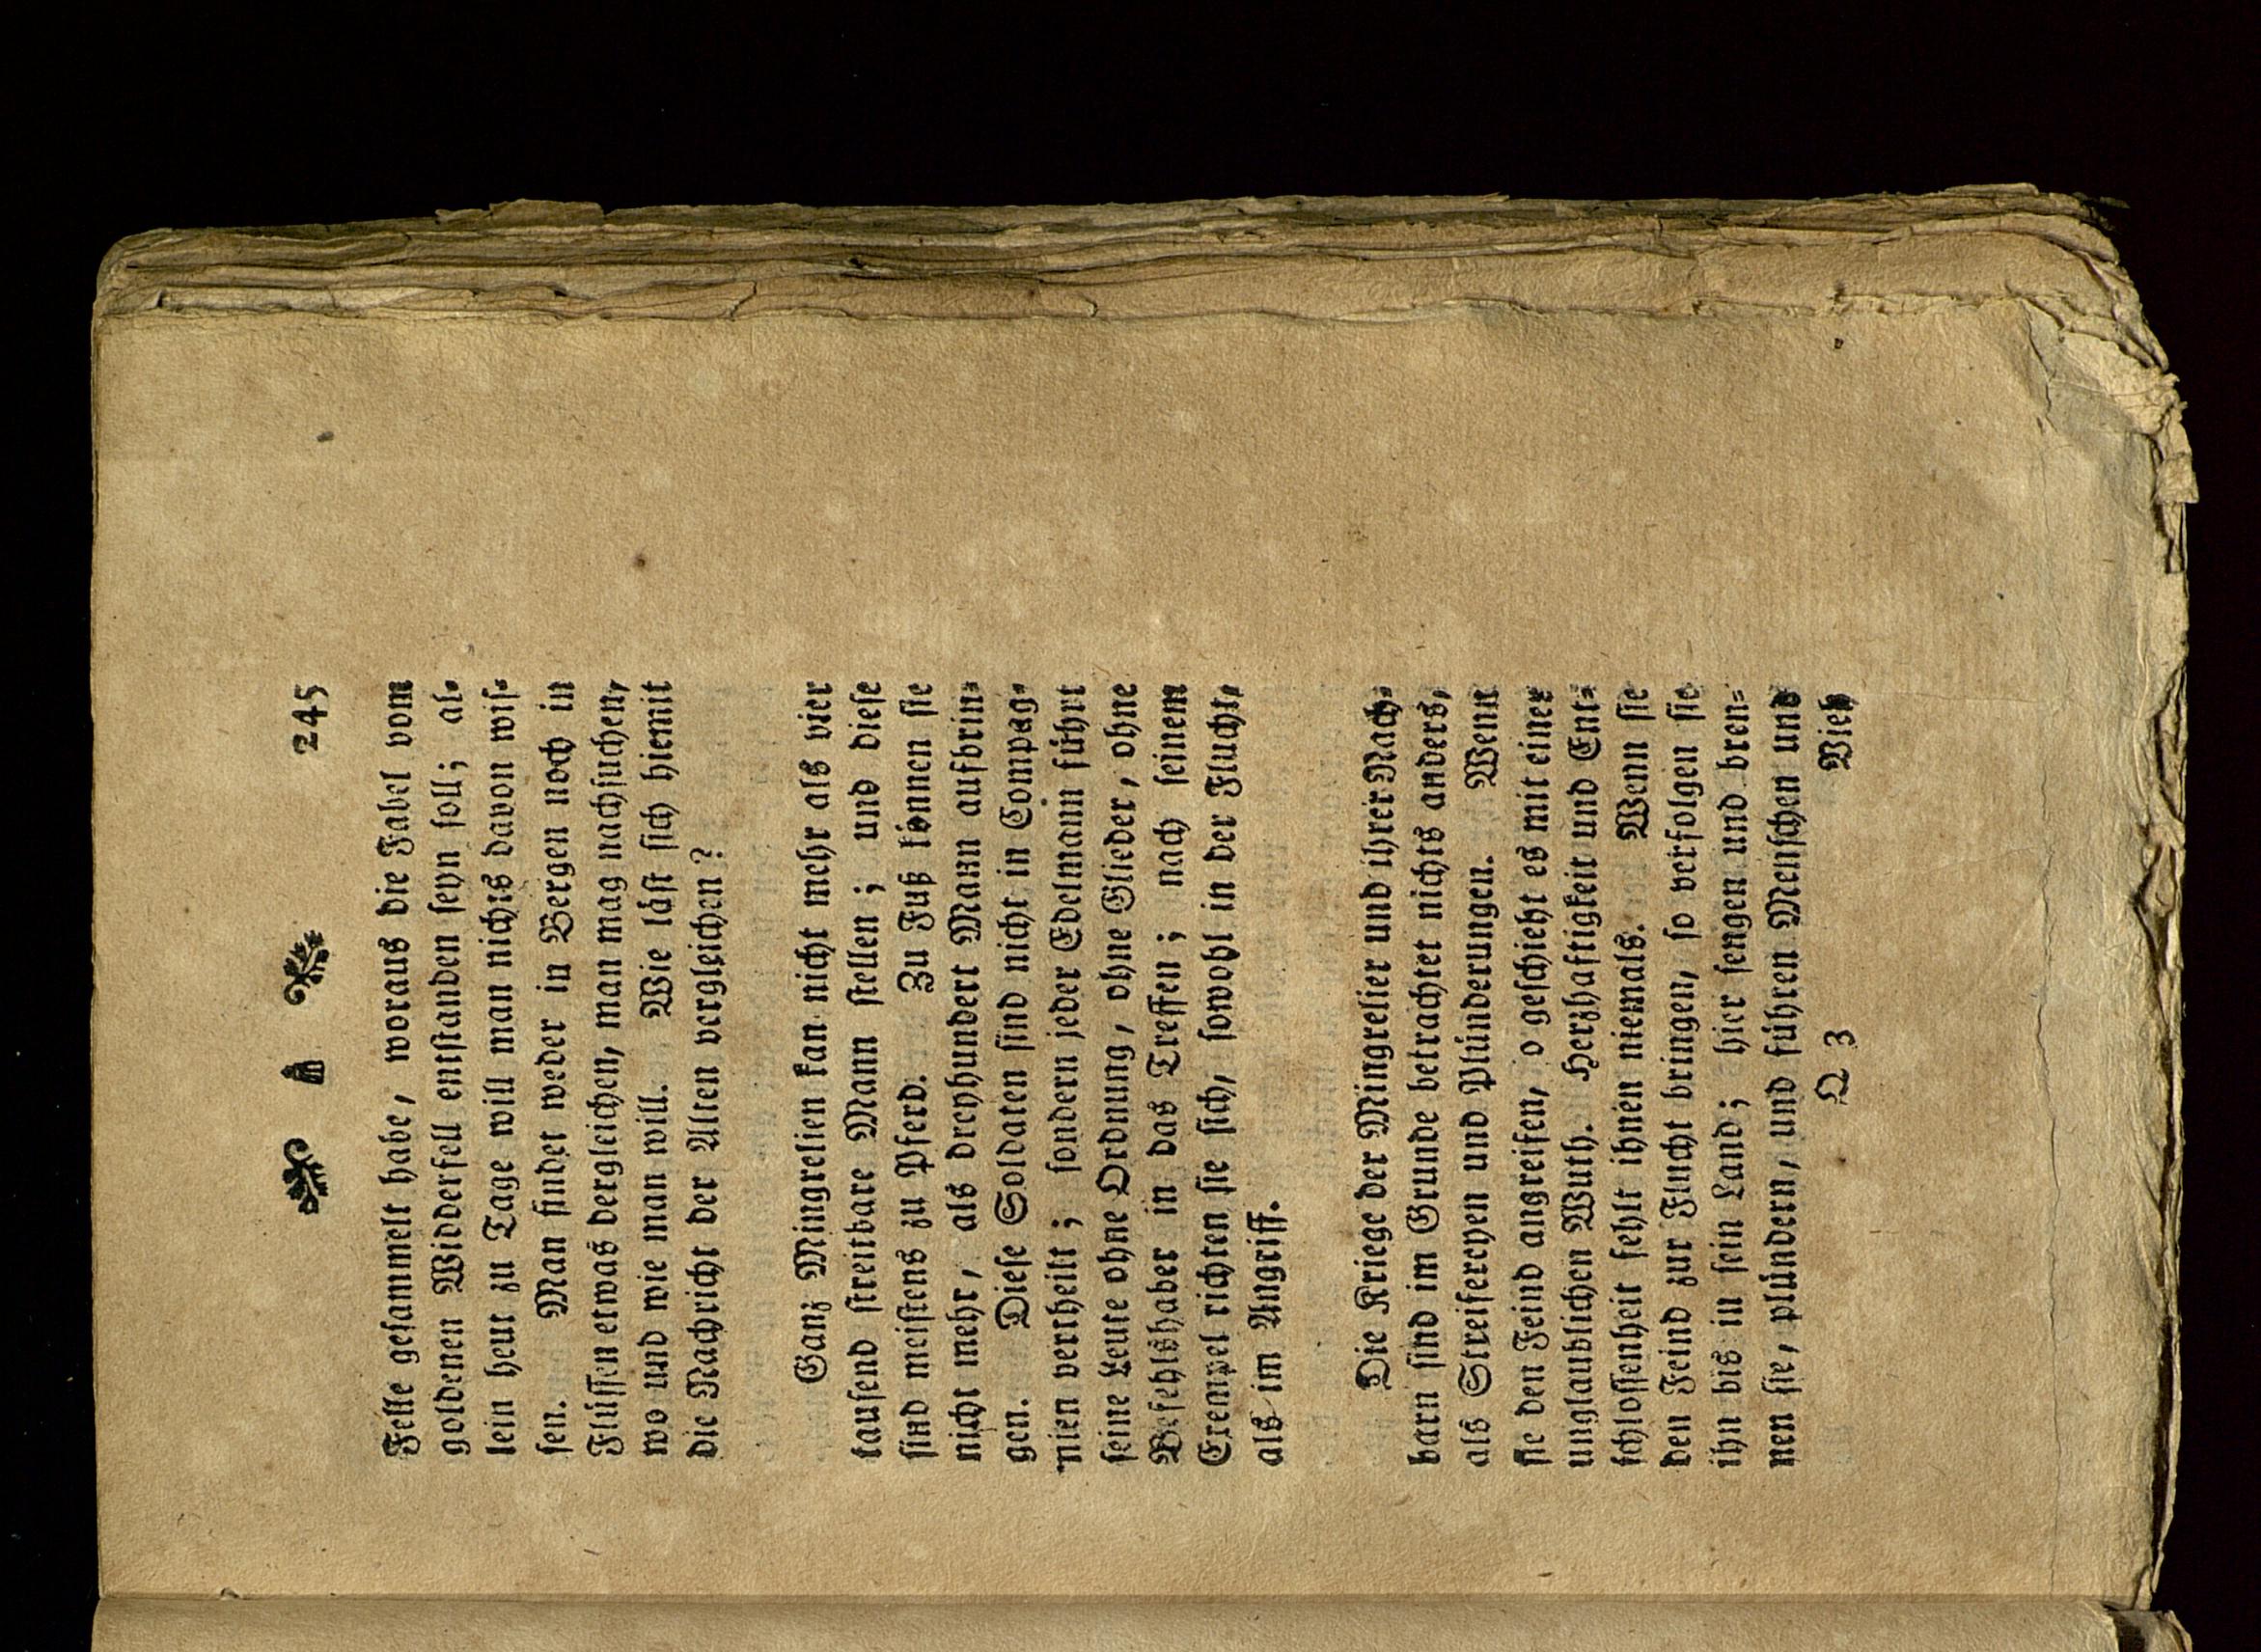 245
Felle gesammelt habe, woraus die Fabel vom
goldenen Widderfell entstanden seyn soll; al-
lein heut zu Tage will man nichts davon wis-
sen. Man findet weder in Bergen noch in
Flüssen etwas dergleichen, man mag nachsuchen,
wo und wie man will. Wie läst sich hiemit
die Nachricht der Alten vergleichen?
Ganz Mingrelien kan nicht mehr als vier
tausend streitbare Mann stellen; und diese
sind meistens zu Pferd. Zu Fuß können sie
nicht mehr, als dreyhundert Mann aufbrin-
gen. Diese Soldaten sind nicht in Compag-
nien vertheilt; sondern jeder Edelmann führt
seine Leute ohne Ordnung, ohne Glieder, ohne
Befehlshaber in das Treffen; nach seinem
Exempel richten sie sich, sowohl in der Flucht,
als im Angriff.
Die Kriege der Mingrelier und ihrer Nach-
barn sind im Grunde betrachtet nichts anders,
als Streifereyen und Plünderungen. Wenn
sie den Feind angreifen, o geschieht es mit einer
unglaublichen Wuth. Herzhaftigkeit und Ent-
schlossenheit fehlt ihnen niemals. Wenn sie
den Feind zur Flucht bringen, so verfolgen sie
ihn bis in sein Land; hier sengen und bren-
nen sie, plündern, und führen Menschen und
Q 3 Vieh